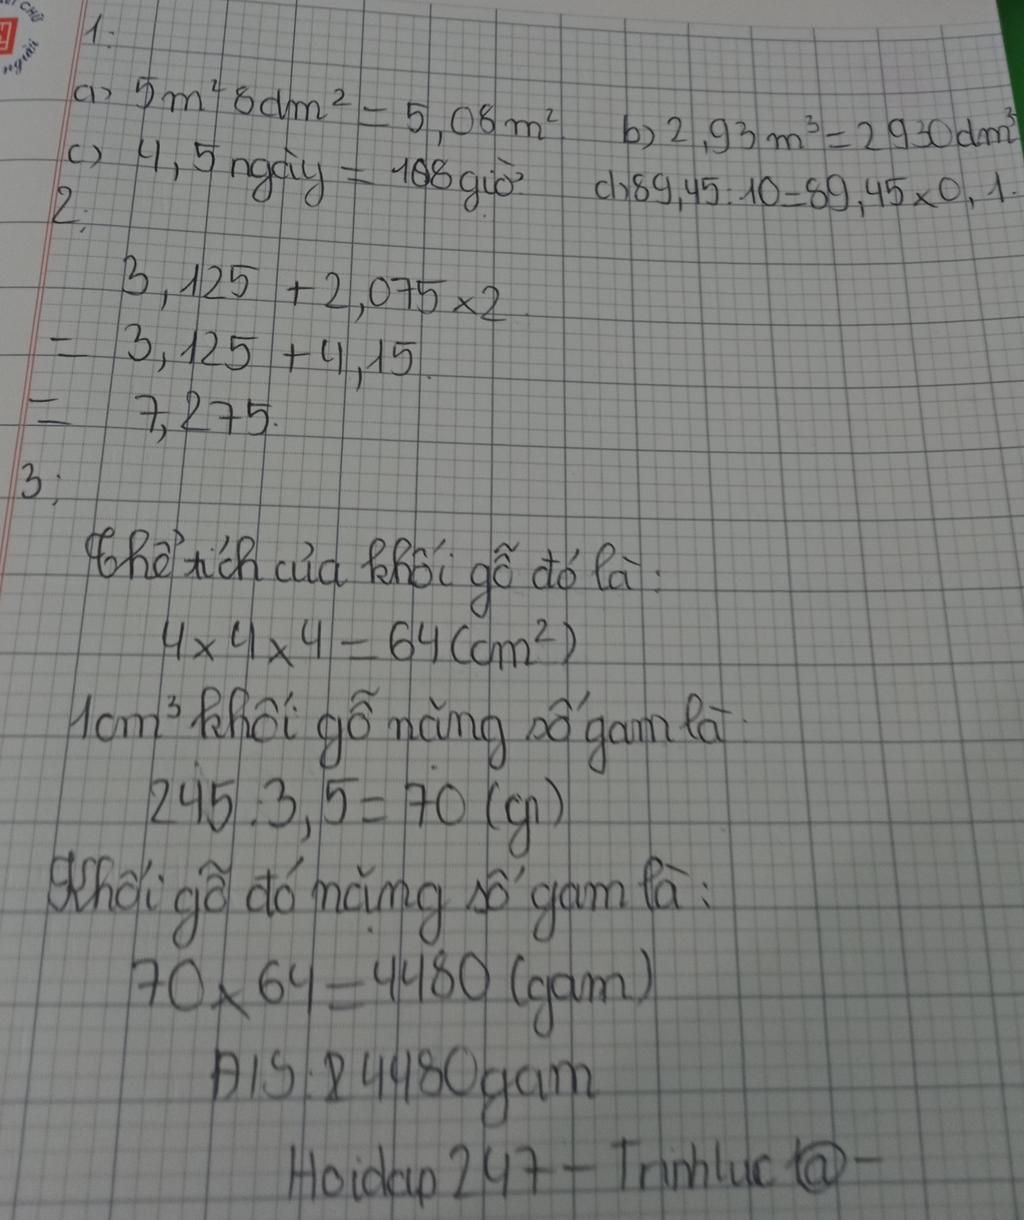 CHỮ
người
1:
a) 5m² 8dm² = 5,08m² b) 2,93 m³ = 2930dm³
c) 4,5 ngày = 108 giờ d) 89,45:10 = 89,45 x 0,1.
2:
3,125 + 2,075 x 2
= 3,125 + 4,15
= 7,275.
3:
thể tích của khối gỗ đó là:
4 x 4 x 4 = 64 (cm²)
1cm³ khối gỗ nặng số gam là
245:3,5 = 70 (g)
Khối gỗ đó nặng số gam là:
70 x 64 = 4480 (gam)
Đ/S: 4480gam
Hoidap247 - Trinhluc @ -